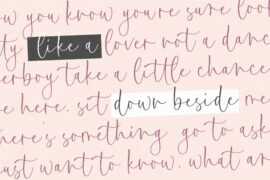 w you know you're sure look
ty like a lover not a danc
erboy take a little chance
e here. sit down beside me
here's something go to ask
ust want to know. what are